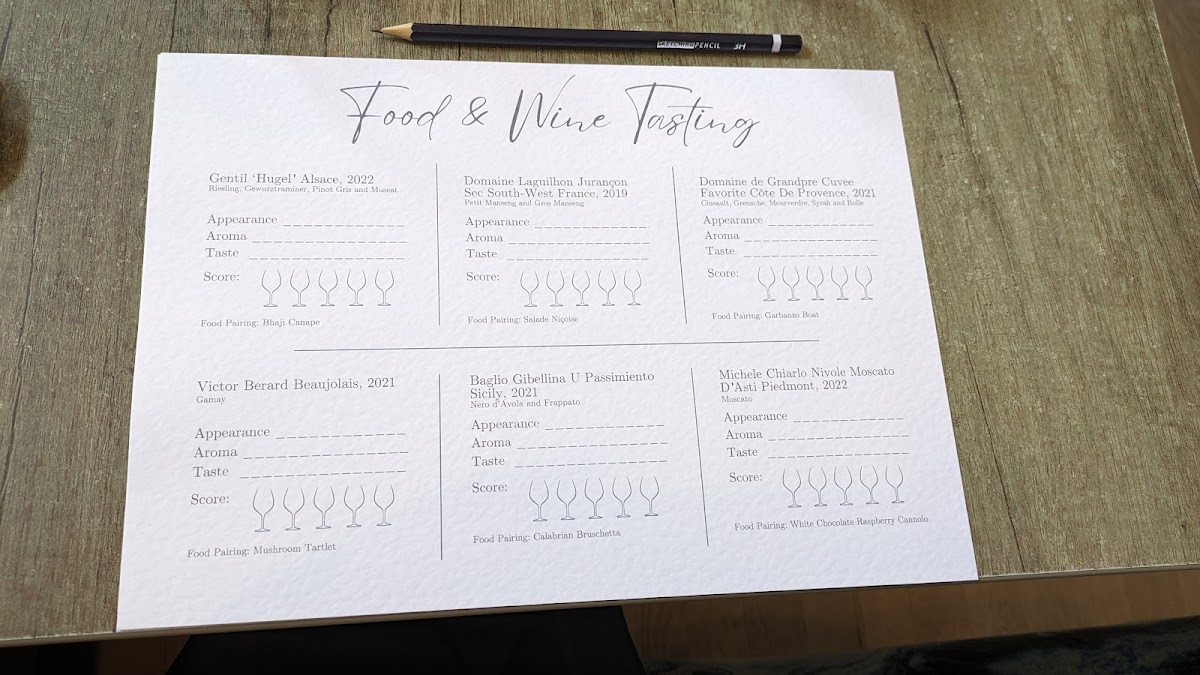 PENCIL 3H
Food & Wine Tasting
Gentil ‘Hugel' Alsace, 2022
Riesling, Gewurztraminer, Pinot Gris and Muscat
Appearance ____________
Aroma _______________
Taste _______________
Score:
Food Pairing: Bhaji Canape
Domaine Laguilhon Jurançon
Sec South-West France, 2019
Petit Manseng and Gros Manseng
Appearance ____________
Aroma _______________
Taste _______________
Score:
Food Pairing: Salade Niçoise
Domaine de Grandpre Cuvee
Favorite Côte De Provence, 2021
Cinsault, Grenache, Mourverdre, Syrah and Rolle
Appearance ____________
Aroma _______________
Taste _______________
Score:
Food Pairing: Garbanzo Boat
Victor Berard Beaujolais, 2021
Gamay
Appearance ____________
Aroma _______________
Taste _______________
Score:
Food Pairing: Mushroom Tartlet
Baglio Gibellina U Passimiento
Sicily, 2021
Nero d'Avola and Frappato
Appearance ____________
Aroma _______________
Taste _______________
Score:
Food Pairing: Calabrian Bruschetta
Michele Chiarlo Nivole Moscato
D'Asti Piedmont, 2022
Moscato
Appearance ____________
Aroma _______________
Taste _______________
Score:
Food Pairing: White Chocolate Raspberry Cannolo